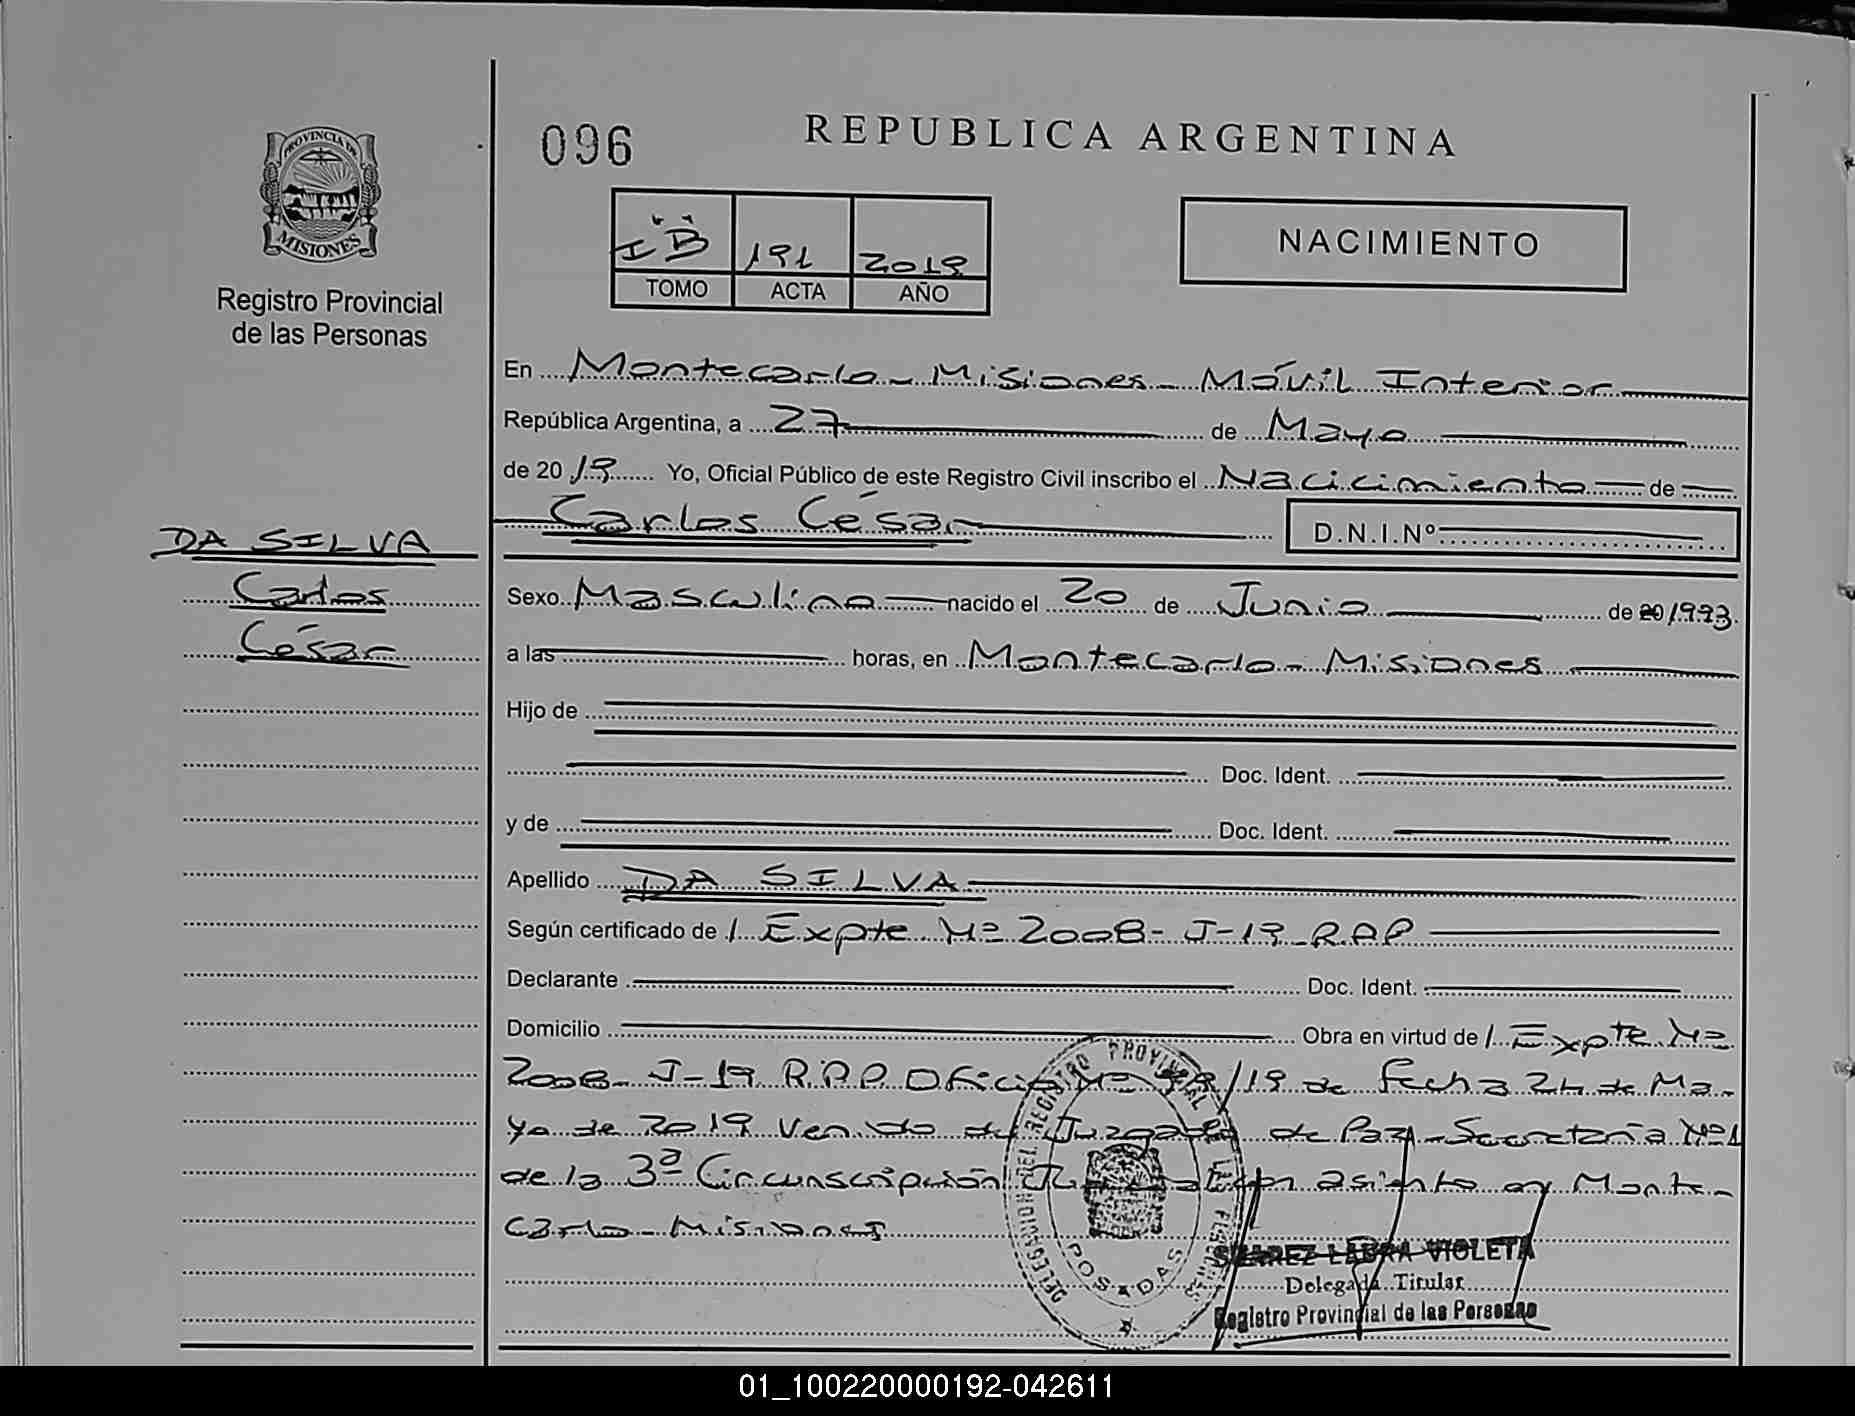 096
REPUBLICA ARGENTINA
PROVINCIA DE
MISIONES
Registro Provincial
de las Personas
I "B" 191 2019
TOMO ACTA AÑO
NACIMIENTO
En Montecarlo - Misiones - Móvil Interior
República Argentina, a 27 de Mayo
de 20 19 Yo, Oficial Público de este Registro Civil inscribo el Nacicimiento de
Carlos César D.N.I.Nº
DA SILVA
Carlos
César
Sexo Masculino nacido el 20 de Junio de 20/1993.
a las horas, en Montecarlo - Misiones
Hijo de
Doc. Ident.
y de Doc. Ident.
Apellido DA SILVA
Según certificado de / Expte Nº 2008- J-19 R.P.P
Declarante Doc. Ident.
Domicilio Obra en virtud de / Expte Nº
2008- J-19 R.P.P Oficio Nº /19 de fecha 24 de Ma-
yo de 2019 Venido del Juzgado de Paz - Secretaria Nº1
de la 3ª Circunscripción con asiento en Monte-
carlo - Misiones
DELEGACION DEL REGISTRO PROVINCIAL DE LAS PERSONAS
POSADAS
SUAREZ LABRA VIOLETA
Delegada Titular
Registro Provincial de las Personas
01_100220000192-042611